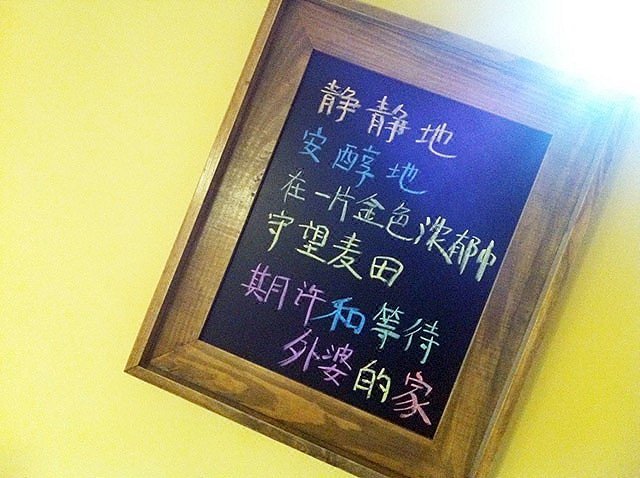 静静地
安醇地
在一片金色浓郁中
守望麦田
期许和等待
外婆的家